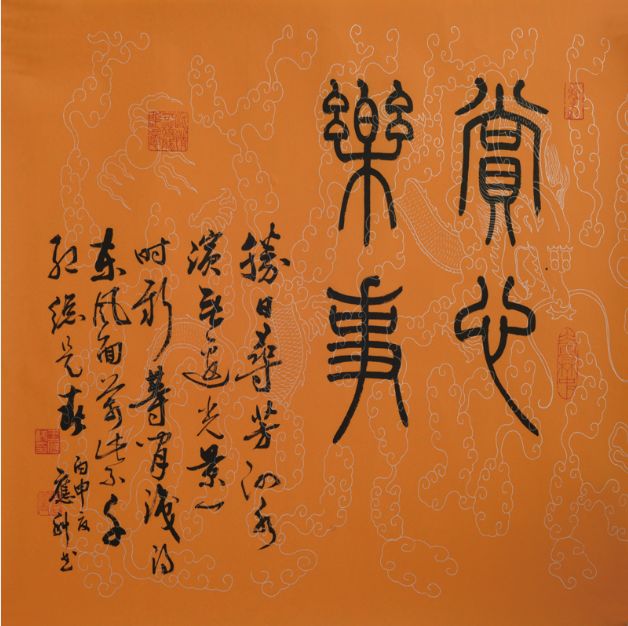 賞心
樂事
勝日尋芳泗水
濱無邊光景一
時新等閒識得
東風面萬紫千
紅總是春
丙申夏
應科書